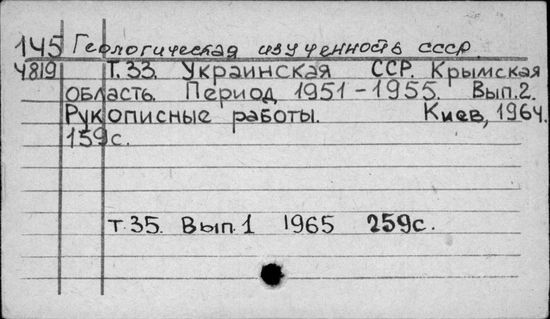 145 Геологическая изученность ссср.
4819 Т.33. Украинская ССР. Крымская
область. Период 1951-1955. Вып.2.
Рукописные работы. Киев, 1964.
159с.
т.35. Вып.1 1965 259с.